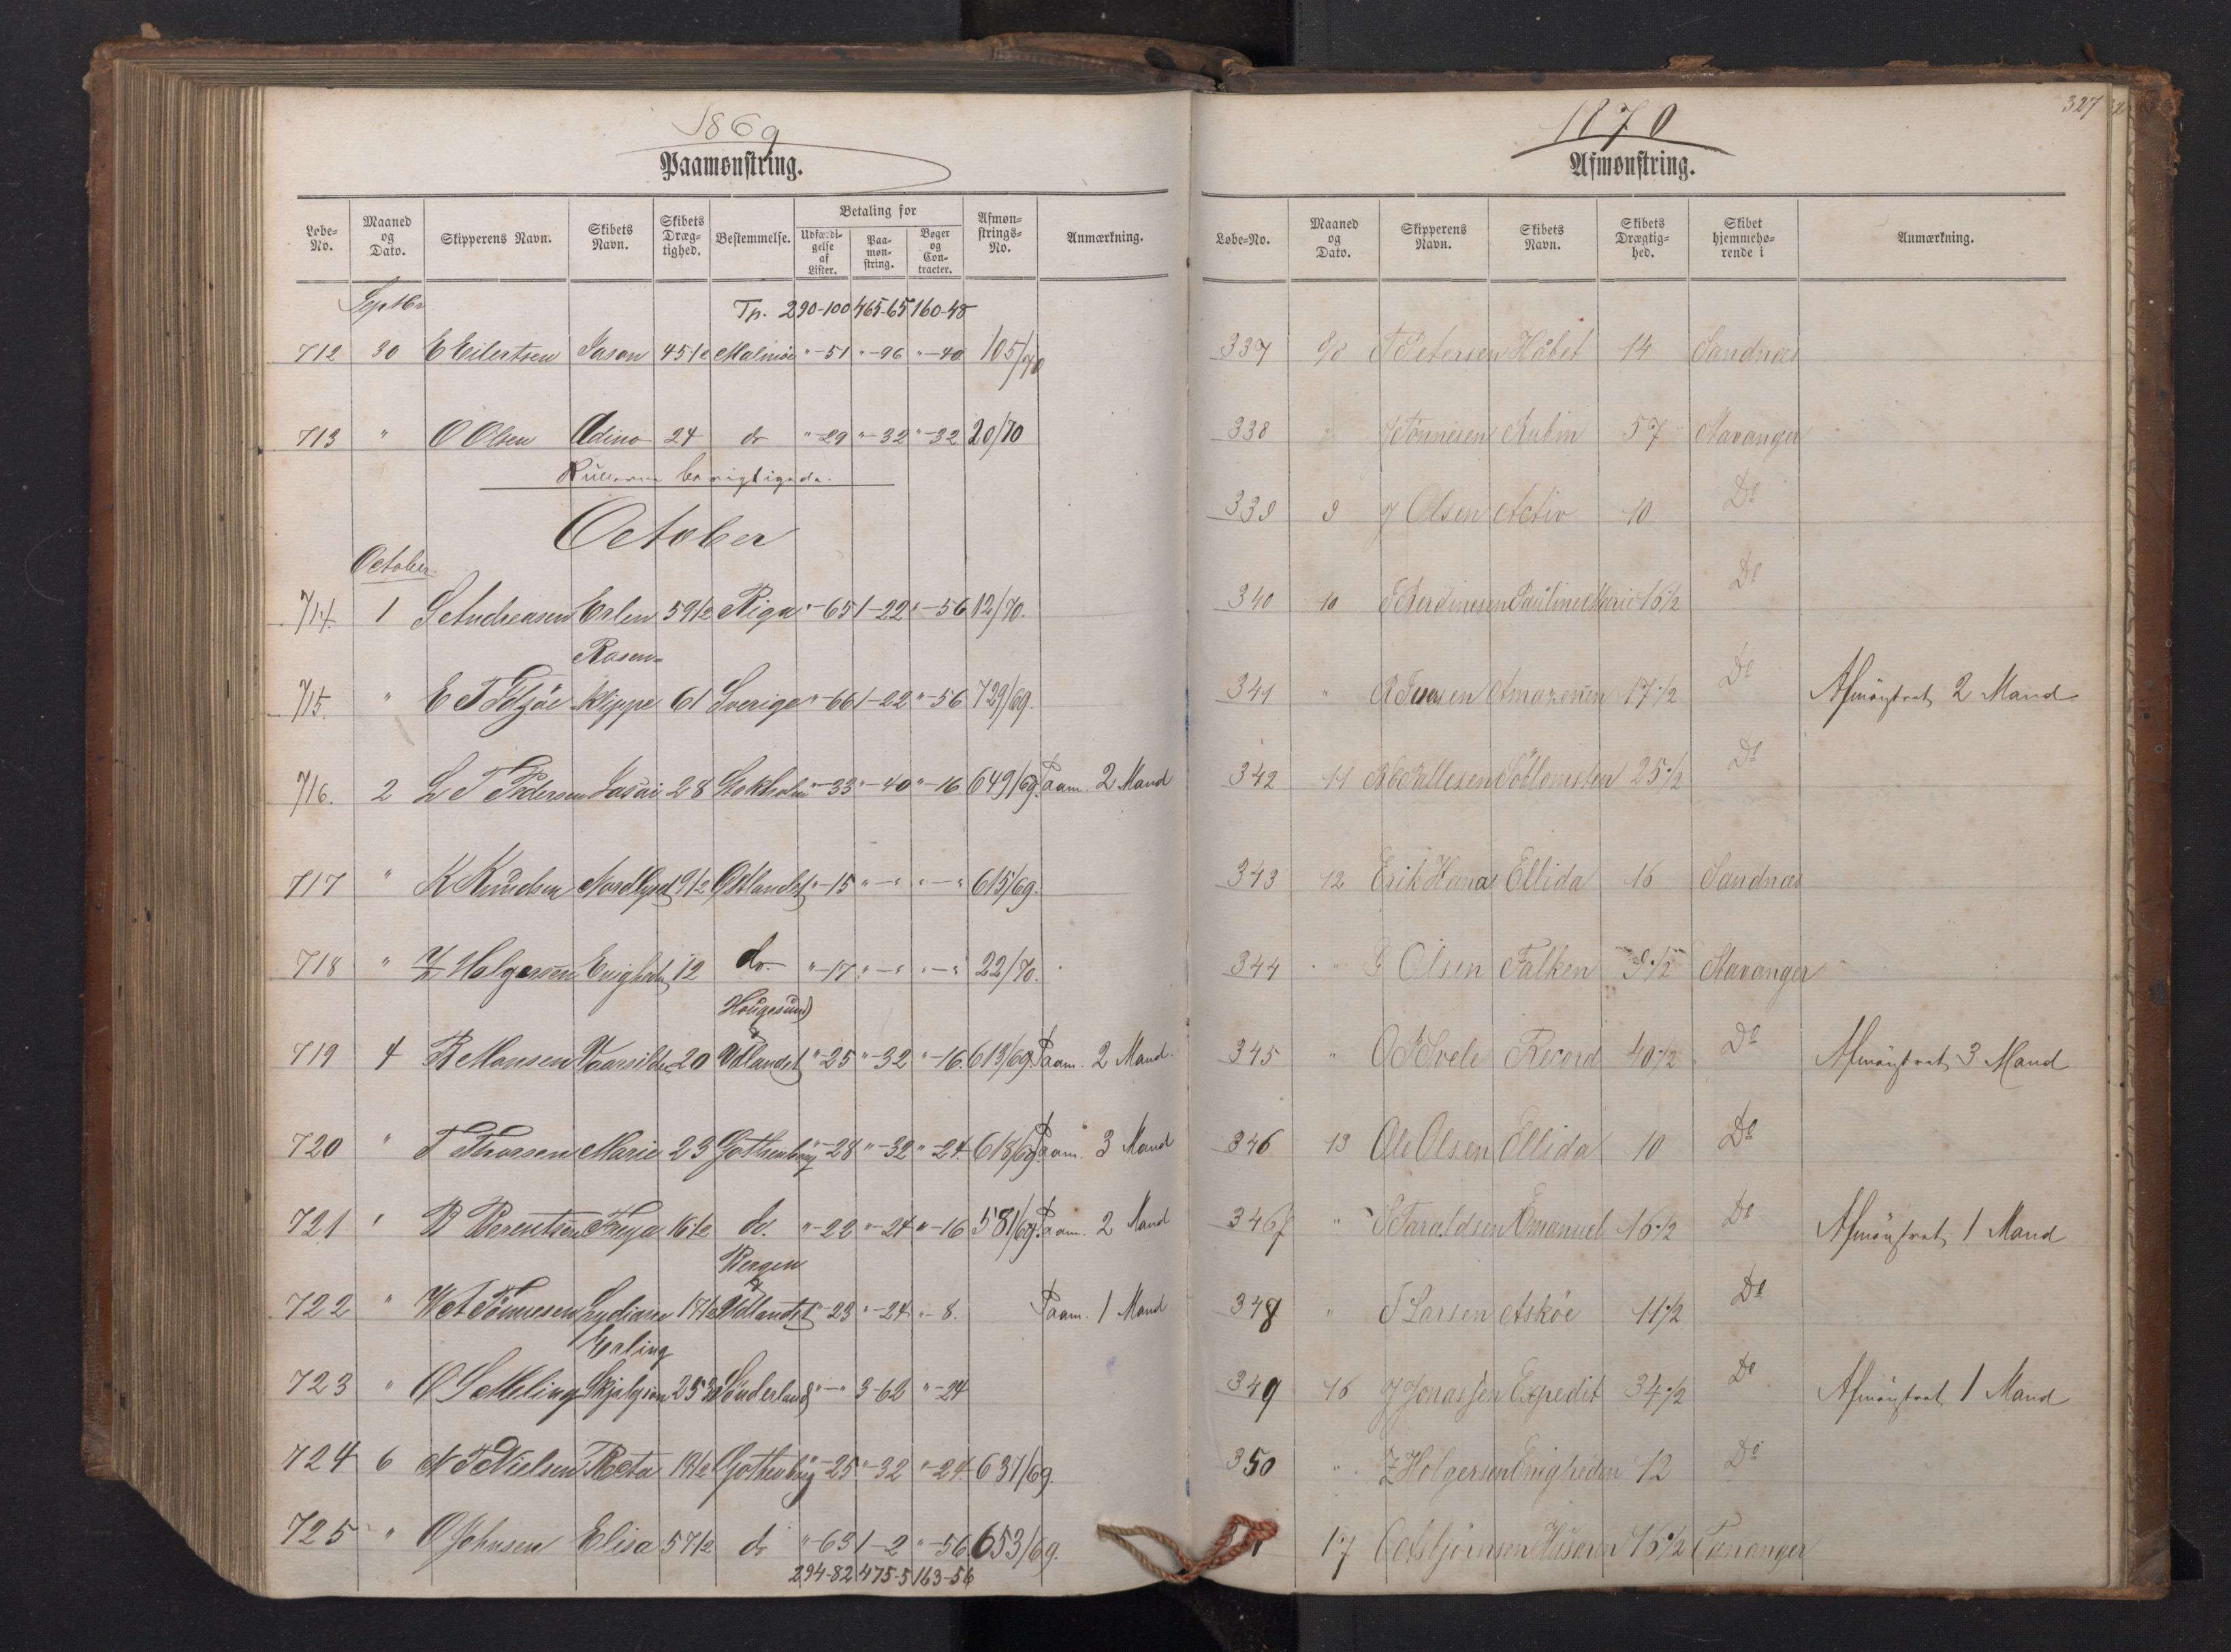 1869
Paamønstring.
Løbe-No. Maaned og Dato. Skipperens Navn. Skibets Navn. Skibets Dræg-tighed. Bestemmelse. Betaling for Udfærdi-gelse af Lister. Paa-møn-string. Bøger og Con-tracter. Afmøn-strings-No. Anmærkning.
Septbr Tp. 290-100 465-65 160-48
712 30 E Eilertsen Jason 45 1/2 Malmöe "-51 "-96 "-40 105/70
713 " O Olsen Adino 24 do "-29 "-32 "-32 20/70
Rullerne berigtigede.
October
October
714. 1 S Andreasen Erlen 59 1/2 Riga "-65 1-22 "-56 12/70.
Rosen-
715. " E T klippe 61 Sverige "-66 1-22 "-56 729/69.
716. 2 L T Pedersen 28 Stokholm "-33 "-40 "-16. 649/69. Paam. 2 Mand
717 " K Knudsen Nordlyset 9 1/2 Østlandet "-15 "-" "-" 615/69.
718 " Z Holgersen Enigheden 12 do. "-17 "-" "-" 22/70.
Hougesund
719 4 B Monsen Vaarsilden 20 & Udlandet "-25 "-32 "-16. 613/69. Paam. 2 Mand.
720 " T Thorsen Marie 23 Gothenborg "-28 "-32 "-24. 618/69. Paam. 3 Mand
721 " B Berentsen Freya 16 1/2 do. "-22 "-24 "-16 581/69. Paam. 2 Mand
Bergen
722 " W A Tönnesen Lydiane 17 1/2 & Udlandet "-23 "-24 "-8. Paam. 1 Mand
Erling
723 " O S Meling Skjalgson 253 Sünderland "-" 3-62 "-24
724 6 N T Nielsen Theta 19 1/2 Gothenborg "-25 "-32 "-24. 637/69.
725 " O Johnsen Elisa 57 1/2 do "-63 1-2 "-56. 653/69.
294-82 475-5 163-56
327
1870
Afmønstring.
Løbe-No. Maaned og Dato. Skipperens Navn. Skibets Navn. Skibets Drægtig-hed. Skibet hjemmehø-rende i Anmærkning.
337 9/8 T Petersen Håbet 14 Sandnæs
338 " J Tönnesen Rubin 57 Stavanger
339 9 J Olsen Activ 10 Do
340 10 T Ferdinesen Pauline Marie 16 1/2 Do
341 " R Amazonen 17 1/2 Do Afmönstret 2 Mand
342 11 R C Pallesen Söblomsten 25 1/2 Do
343 12 Erik Hana Ellida 16 Sandnæs
344 " Olsen Falken 9 1/2 Stavanger
345 " O Record 40 1/2 Do Afmönstret 3 Mand
346 13 Ole Olsen Ellida 10 Do
347 " S Taraldsen Emanuel 16 1/2 Do Afmönstret 1 Mand
348 " T Larsen Asköe 11 1/2 Do
349 16 J Jonassen Expedit 34 1/2 Do Afmönstret 1 Mand
350 " Z Holgersen Enigheden 12 Do
17 O Asbjörnsen Husaren 16 1/2 Tananger